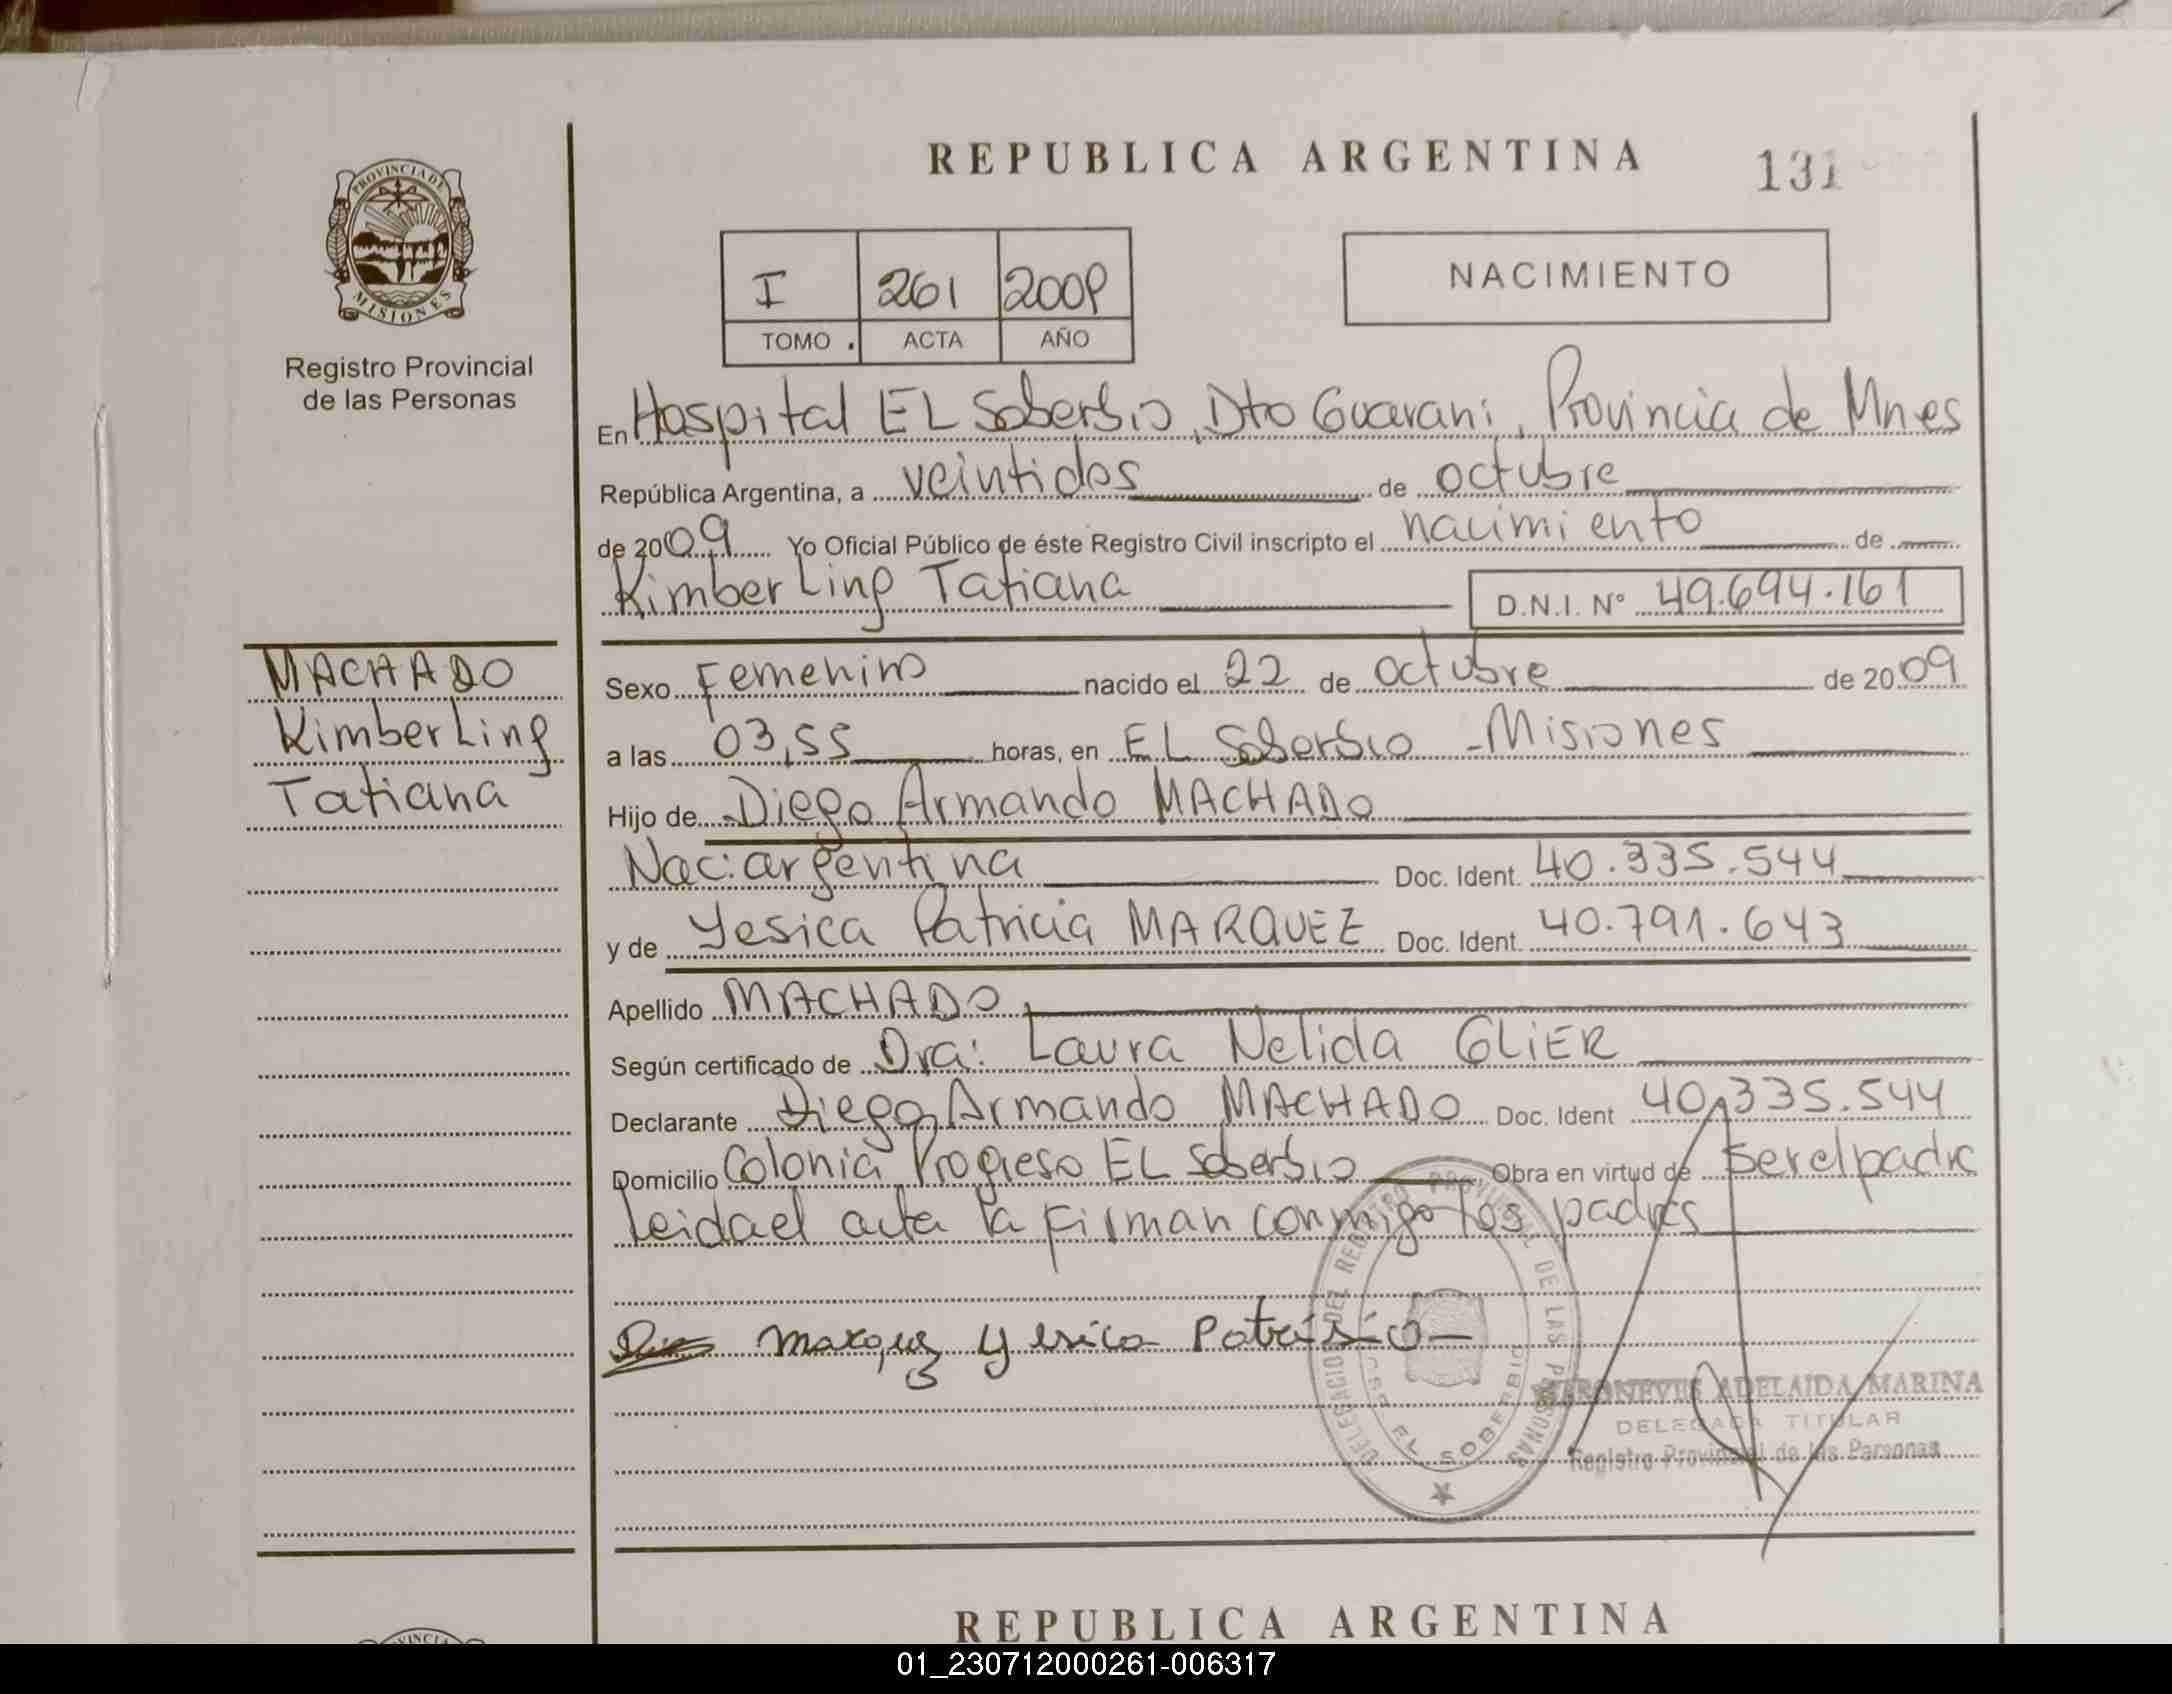 REPUBLICA ARGENTINA
131
PROVINCIA DE
MISIONES
Registro Provincial
de las Personas
I 261 2009
TOMO . ACTA AÑO
NACIMIENTO
En Hospital EL Soberbio, Dto Guarani, Provincia de Mnes
República Argentina, a veintidos de octubre
de 2009 Yo Oficial Público de éste Registro Civil inscripto el nacimiento de
Kimberling Tatiana D.N.I. Nº 49.694.161
MACHADO
Kimberling
Tatiana
Sexo Femenino nacido el 22 de octubre de 2009
a las 03,55 horas, en EL Soberbio - Misiones
Hijo de Diego Armando MACHADO
Nac: argentina Doc. Ident. 40.335.544
y de Yesica Patricia MARQUEZ Doc. Ident. 40.791.643
Apellido MACHADO
Según certificado de Dra: Laura Nelida GLIER
Declarante Diego Armando MACHADO Doc. Ident 40.335.544
Domicilio Colonia Progreso EL Soberbio Obra en virtud de ser el padre
leida el acta la firman conmigo los padres
Marquez Yesica Patrisia
DELEGACIO DEL REGISTRO PROVINCIAL DE LAS PERSONAS
EL SOBERBIO
ADELAIDA MARINA
DELEGADA TITULAR
Registro Provincial de las Personas
REPUBLICA ARGENTINA
01_230712000261-006317